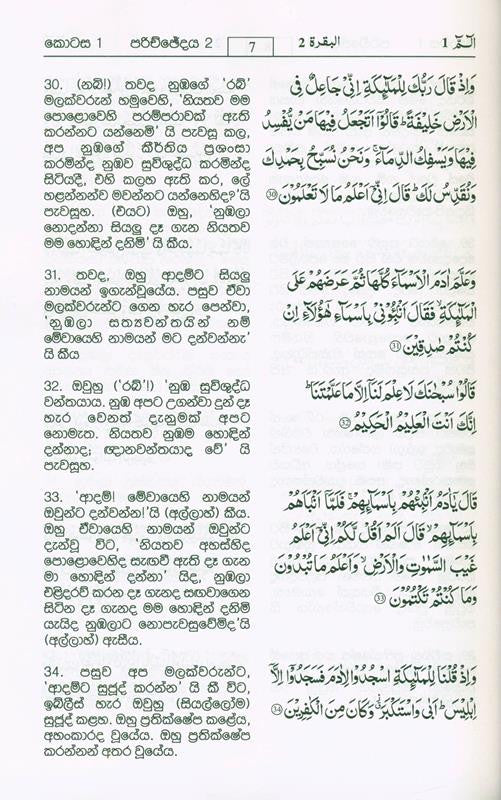 කොටස 1 පරිච්ඡේදය 2 7 البقرة 2 الٓمّٓ 1
30. (නබී!) තවද නුඹගේ 'රබ්'
මලක්වරුන් හමුවෙහි, 'නියතව මම
පොළොවෙහි පරම්පරාවක් ඇති
කරන්නට යන්නෙමි' යි පැවසූ කල,
අප නුඹගේ කීර්තිය ප්‍රශංසා
කරමින්ද නුඹව සුවිශුද්ධ කරමින්ද
සිටියදී, එහි කලහ ඇති කර, ලේ
හළන්නන්ව මවන්නට යන්නෙහිද?'යි
පැවසූහ. (එයට) ඔහු, 'නුඹලා
නොදන්නා සියලු දෑ ගැන නියතව
මම හොඳින් දනිමි' යි කීය.
31. තවද, ඔහු ආදම්ට සියලු
නාමයන් ඉගැන්වූයේය. පසුව ඒවා
මලක්වරුන්ට ගෙන හැර පෙන්වා,
'නුඹලා සත්‍යවන්තයින් නම්
මේවායෙහි නාමයන් මට දන්වන්නැ'
යි කීය
32. ඔවුහු ('රබ්'!) 'නුඹ සුවිශුද්ධ
වන්තයාය. නුඹ අපට උගන්වා දුන් දෑ
හැර වෙනත් දැනුමක් අපට
නොමැත. නියතව නුඹම හොඳින්
දන්නාද; ඥානවන්තයාද වේ' යි
පැවසූහ.
33. 'ආදම්! මේවායෙහි නාමයන්
ඔවුන්ට දන්වන්න!'යි (අල්ලාහ්) කීය.
ඔහු ඒවායෙහි නාමයන් ඔවුන්ට
දැන්වූ විට, 'නියතව අහස්හිද
පොළොවෙහිද සැඟවී ඇති දෑ ගැන
මා හොඳින් දන්නා' යිද, නුඹලා
එළිදරව් කරන දෑ ගැනද සඟවාගෙන
සිටින දෑ ගැනද මම හොඳින් දනිමි
යැයිද නුඹලාට නොපැවසුවෙම්ද'යි
(අල්ලාහ්) ඇසීය.
34. පසුව අප මලක්වරුන්ට,
'ආදම්ට සුජූද් කරන්න' යි කී විට,
ඉබ්ලීස් හැර ඔවුහු (සියල්ලෝම)
සුජූද් කළහ. ඔහු ප්‍රතික්ෂේප කළේය,
අහංකාරද වූයේය. ඔහු ප්‍රතික්ෂේප
කරන්නන් අතර වූයේය.
وَاِذْ قَالَ رَبُّكَ لِلْمَلٰٓىِٕكَةِ اِنِّىْ جَاعِلٌ فِى
الْاَرْضِ خَلِيْفَةً ؕ قَالُوْٓا اَتَجْعَلُ فِيْهَا مَنْ يُّفْسِدُ
فِيْهَا وَيَسْفِكُ الدِّمَآءَ ۚ وَنَحْنُ نُسَبِّحُ بِحَمْدِكَ
وَنُقَدِّسُ لَكَ ؕ قَالَ اِنِّىْٓ اَعْلَمُ مَا لَا تَعْلَمُوْنَ 30
وَعَلَّمَ اٰدَمَ الْاَسْمَآءَ كُلَّهَا ثُمَّ عَرَضَهُمْ عَلَى
الْمَلٰٓىِٕكَةِ ۙ فَقَالَ اَنْۢبِـُٔوْنِىْ بِاَسْمَآءِ هٰٓؤُلَآءِ اِنْ
كُنْتُمْ صٰدِقِيْنَ 31
قَالُوْا سُبْحٰنَكَ لَا عِلْمَ لَنَآ اِلَّا مَا عَلَّمْتَنَا ؕ
اِنَّكَ اَنْتَ الْعَلِيْمُ الْحَكِيْمُ 32
قَالَ يٰٓاٰدَمُ اَنْۢبِئْهُمْ بِاَسْمَآىِٕهِمْ ۚ فَلَمَّآ اَنْۢبَاَهُمْ
بِاَسْمَآىِٕهِمْ ۙ قَالَ اَلَمْ اَقُلْ لَّكُمْ اِنِّىْٓ اَعْلَمُ
غَيْبَ السَّمٰوٰتِ وَالْاَرْضِ ۙ وَاَعْلَمُ مَا تُبْدُوْنَ
وَمَا كُنْتُمْ تَكْتُمُوْنَ 33
وَاِذْ قُلْنَا لِلْمَلٰٓىِٕكَةِ اسْجُدُوْا لِاٰدَمَ فَسَجَدُوْٓا اِلَّآ
اِبْلِيْسَ ؕ اَبٰى وَاسْتَكْبَرَ ۗ وَكَانَ مِنَ الْكٰفِرِيْنَ 34